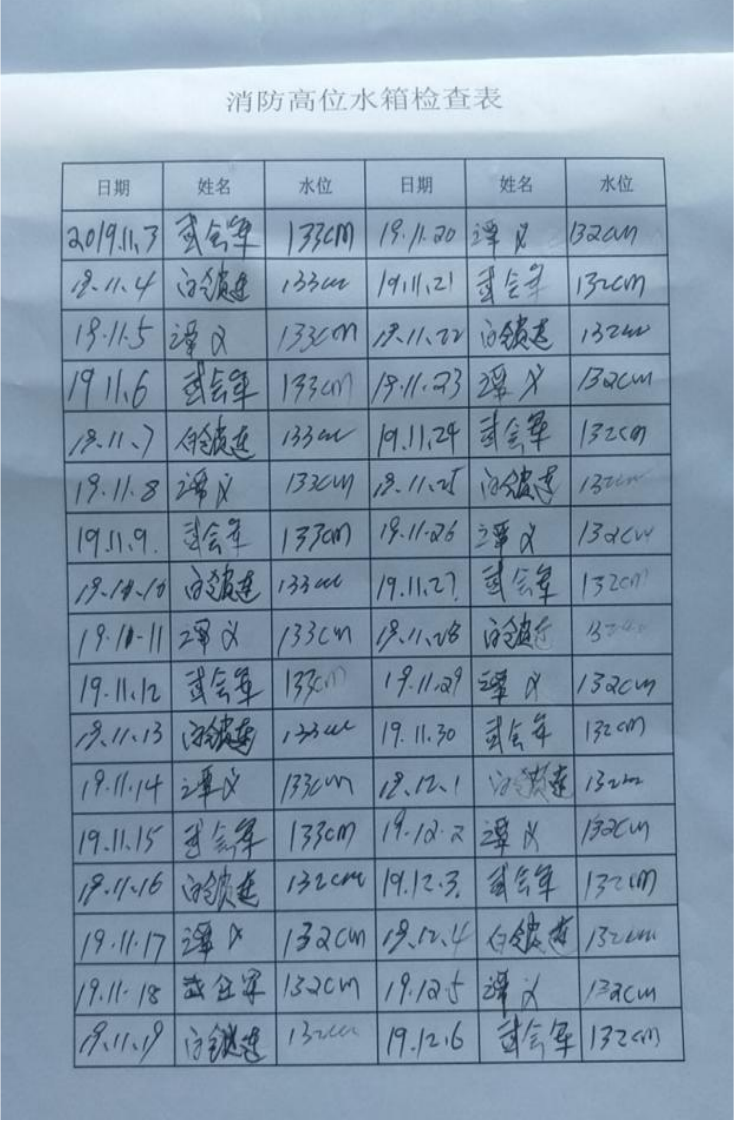 消防高位水箱检查表
日期 姓名 水位 日期 姓名 水位
2019.11.3 武会军 133cm 19.11.20 谭义 132cm
19.11.4 白锁连 133cm 19.11.21 武会军 132cm
19.11.5 谭义 133cm 19.11.22 白锁连 132cm
19.11.6 武会军 133cm 19.11.23 谭义 132cm
19.11.7 白锁连 133cm 19.11.24 武会军 132cm
19.11.8 谭义 133cm 19.11.25 白锁连 132cm
19.11.9. 武会军 133cm 19.11.26 谭义 132cm
19.11.10 白锁连 133cm 19.11.27. 武会军 132cm
19.11.11 谭义 133cm 19.11.28 白锁连
19.11.12 武会军 133cm 19.11.29 谭义 132cm
19.11.13 白锁连 133cm 19.11.30 武会军 132cm
19.11.14 谭义 133cm 19.12.1 白锁连 132cm
19.11.15 武会军 133cm 19.12.2 谭义 132cm
19.11.16 白锁连 132cm 19.12.3. 武会军 132cm
19.11.17 谭义 132cm 19.12.4 白锁连 132cm
19.11.18 武会军 132cm 19.12.5 谭义 132cm
19.11.19 白锁连 132cm 19.12.6 武会军 132cm